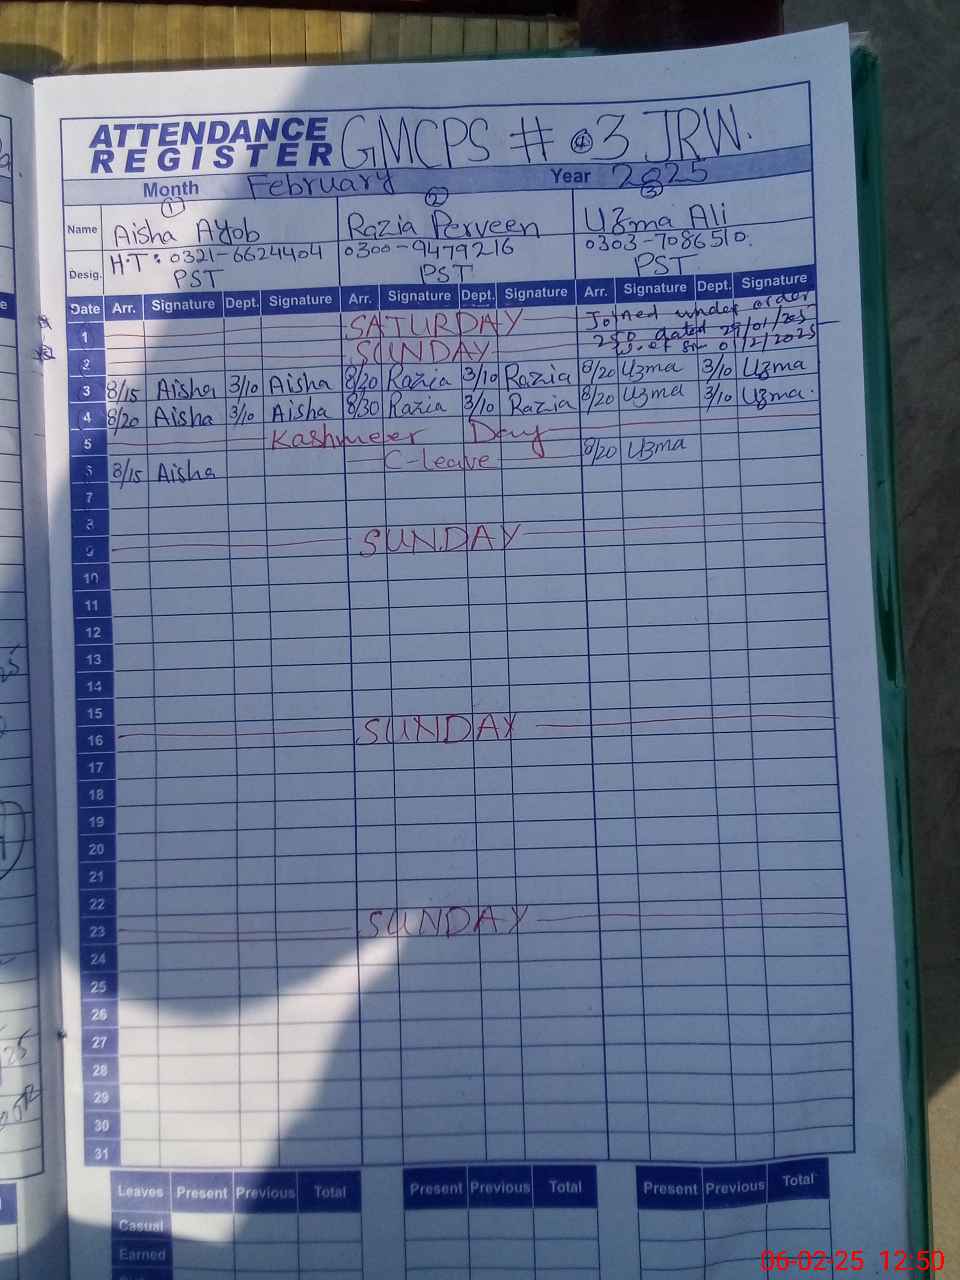 ATTENDANCE REGISTER GMCPS # 3 JRW.
Month February Year 2025
1 2 3
Name Aisha Ayob Razia Perveen Uzma Ali
Desig. H.T: 0321-6624404 0300-9479216 0303-7086510.
PST PST PST
Date Arr. Signature Dept. Signature Arr. Signature Dept. Signature Arr. Signature Dept. Signature
1 SATURDAY Joined under order
2 SUNDAY 250 dated 29/01/25
01/2/2025
3 8/15 Aisha 3/10 Aisha 8/20 Razia 3/10 Razia 8/20 Uzma 3/10 Uzma
4 8/20 Aisha 3/10 Aisha 8/30 Razia 3/10 Razia 8/20 Uzma 3/10 Uzma.
5 Kashmeer Day
6 8/15 Aisha C-leave 8/20 Uzma
7
8
9 SUNDAY
10
11
12
13
14
15
16 SUNDAY
17
18
19
20
21
22
23 SUNDAY
24
25
26
27
28
29
30
31
Leaves Present Previous Total Present Previous Total Present Previous Total
Casual
Earned
06-02-25 12:50